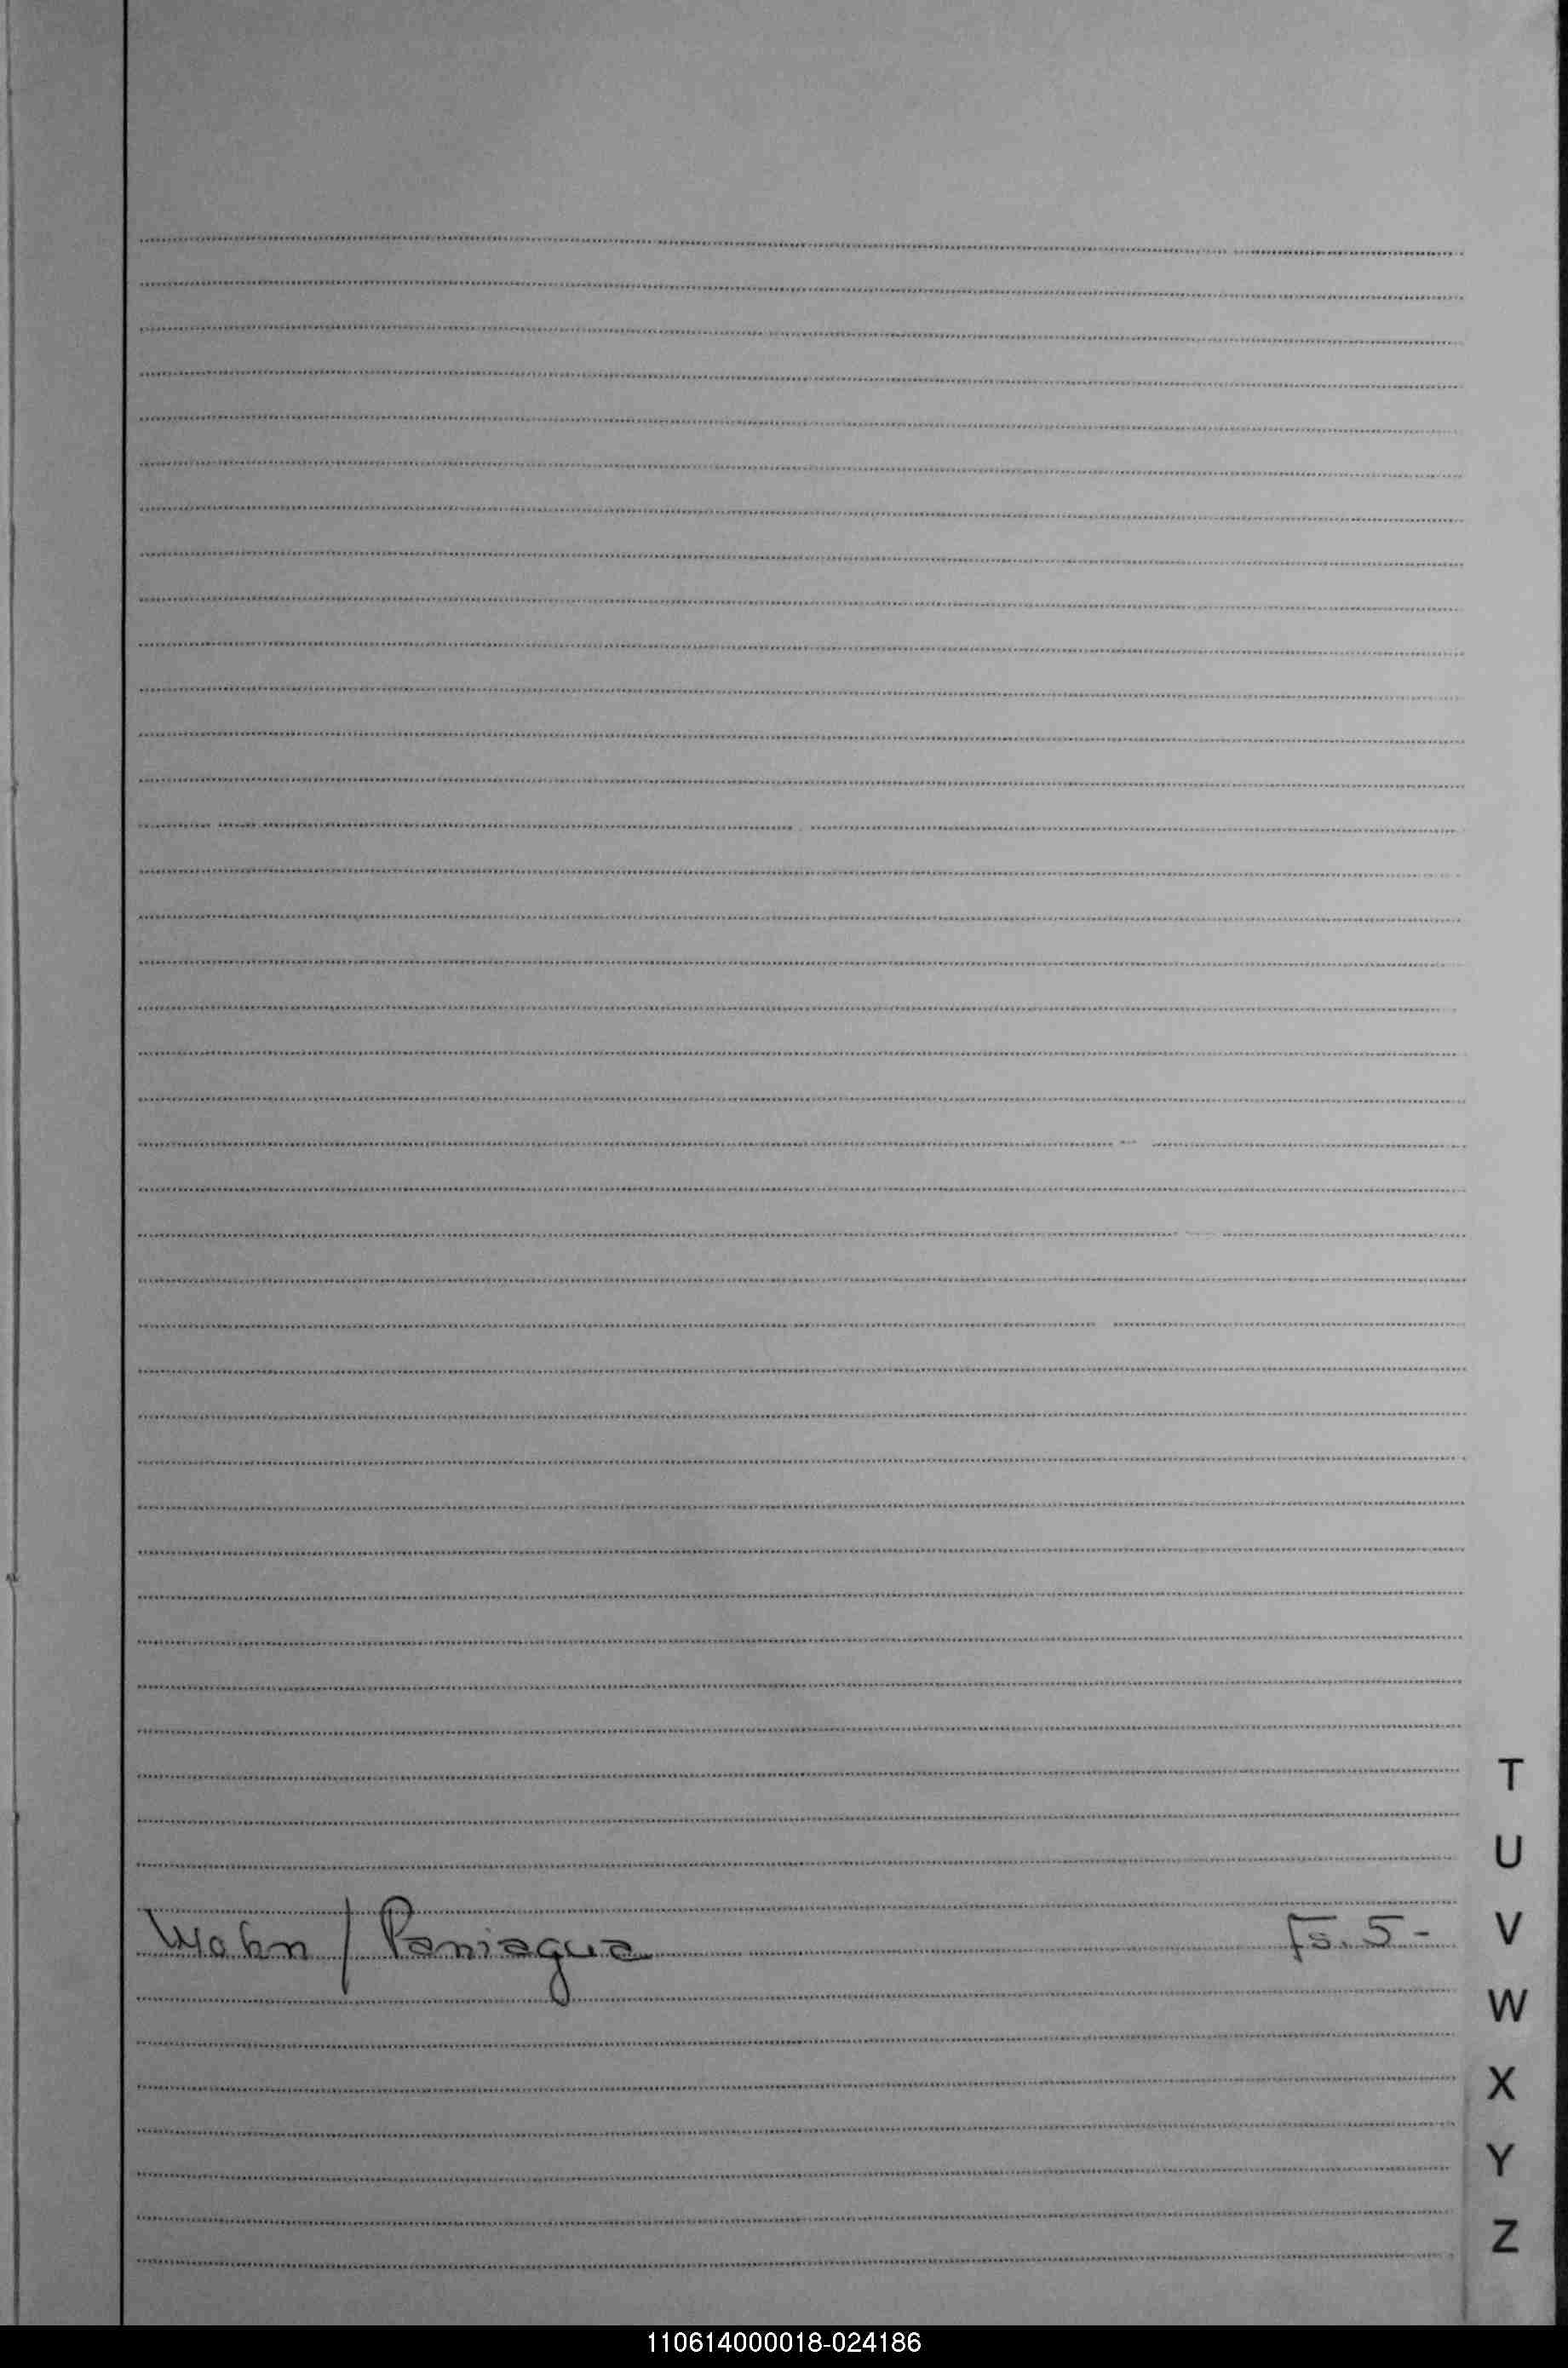 Wahn / Paniagua Fs. 5-
T
U
V
W
X
Y
Z
110614000018-024186